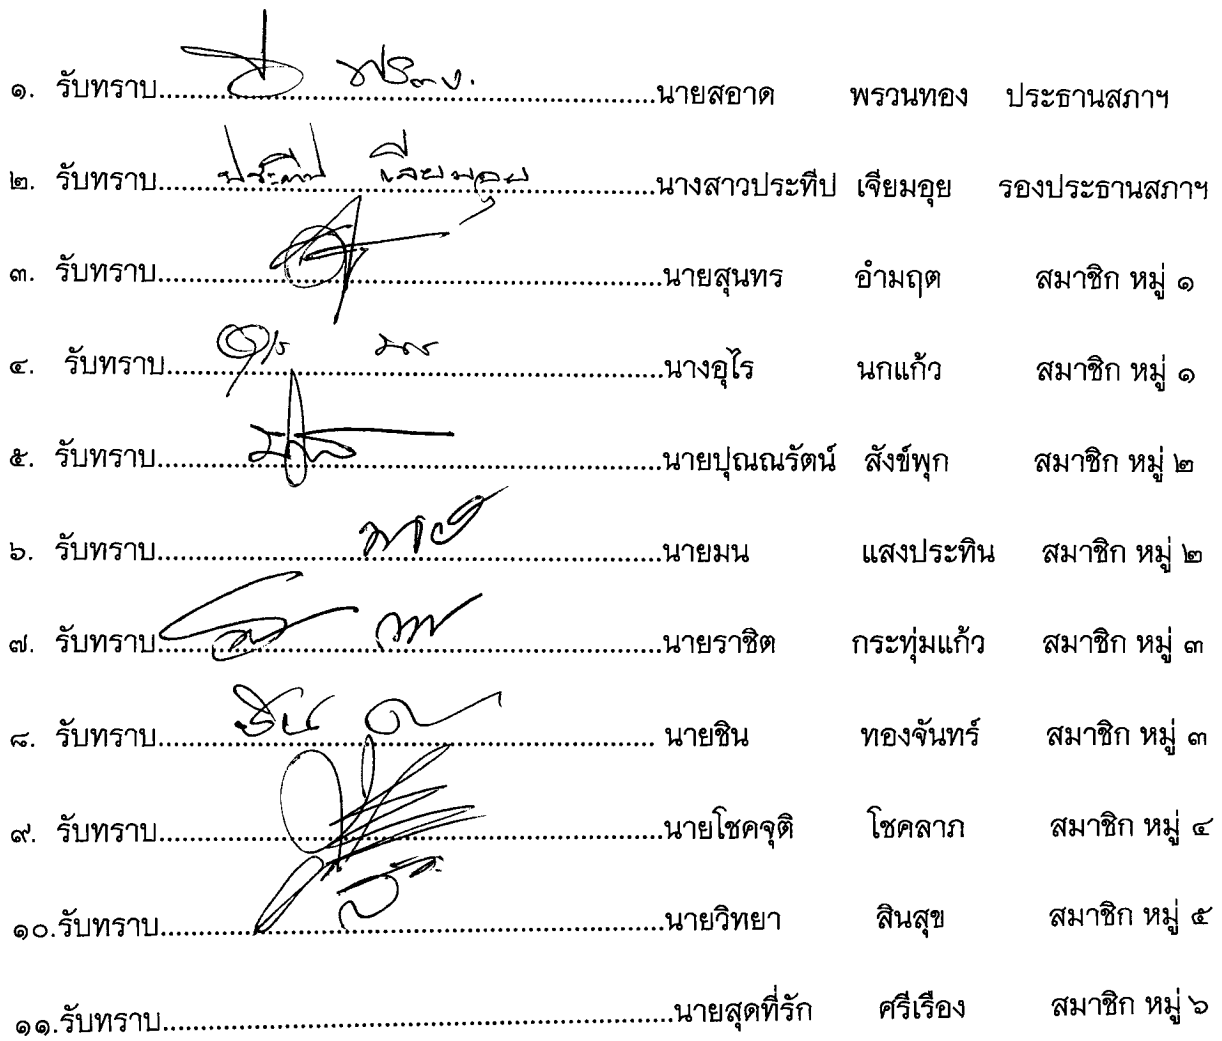 ๑. รับทราบ............................................................นายสอาด พรวนทอง ประธานสภาฯ
๒. รับทราบ.....ประทีป เจียมอุย.....นางสาวประทีป เจียมอุย รองประธานสภาฯ
๓. รับทราบ............................................................นายสุนทร อำมฤต สมาชิก หมู่ ๑
๔. รับทราบ............................................................นางอุไร นกแก้ว สมาชิก หมู่ ๑
๕. รับทราบ............................................................นายปุณณรัตน์ สังข์พุก สมาชิก หมู่ ๒
๖. รับทราบ............................................................นายมน แสงประทิน สมาชิก หมู่ ๒
๗. รับทราบ............................................................นายราชิต กระทุ่มแก้ว สมาชิก หมู่ ๓
๘. รับทราบ............................................................ นายชิน ทองจันทร์ สมาชิก หมู่ ๓
๙. รับทราบ............................................................นายโชคจุติ โชคลาภ สมาชิก หมู่ ๔
๑๐.รับทราบ............................................................นายวิทยา สินสุข สมาชิก หมู่ ๕
๑๑.รับทราบ............................................................นายสุดที่รัก ศรีเรือง สมาชิก หมู่ ๖